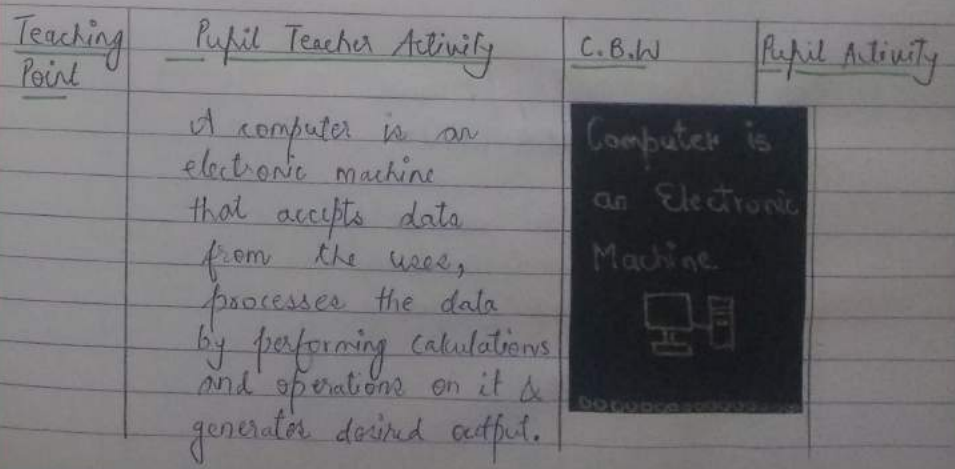 Teaching Point
Pupil Teacher Activity
C.B.W
Pupil Activity
A computer is an
electronic machine
that accepts data
from the user,
processes the data
by performing calculations
and operations on it &
generates desired output.
Computer is
an Electronic
Machine.